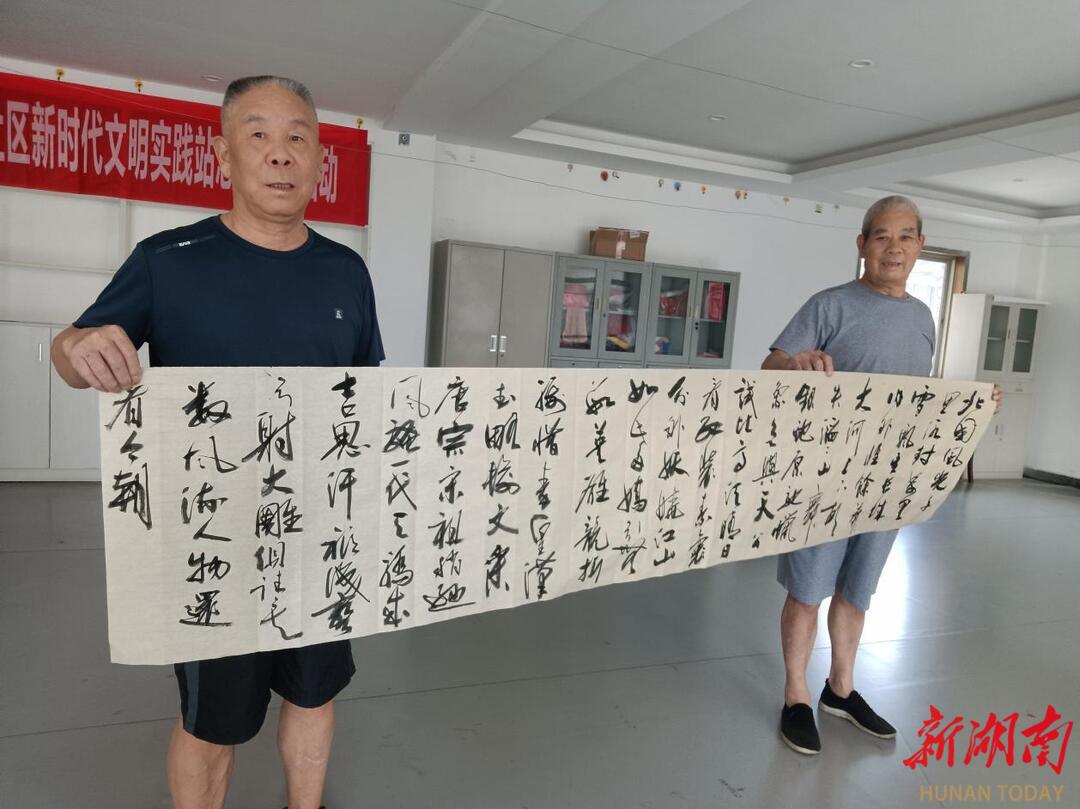 社区新时代文明实践站
动
北国风光千
里冰封万里
雪飘望长城
内外惟余莽
大河上下顿
失滔滔山舞
银蛇原驰蜡
象欲与天公
试比高须晴日
看红装素裹
分外妖娆江山
如此多娇引无
数英雄竞折
腰惜秦皇汉
武略输文采
唐宗宋祖稍逊
风骚一代天骄成
吉思汗祗识弯
弓射大雕俱往矣
数风流人物还
看今朝
新湖南
HUNAN TODAY